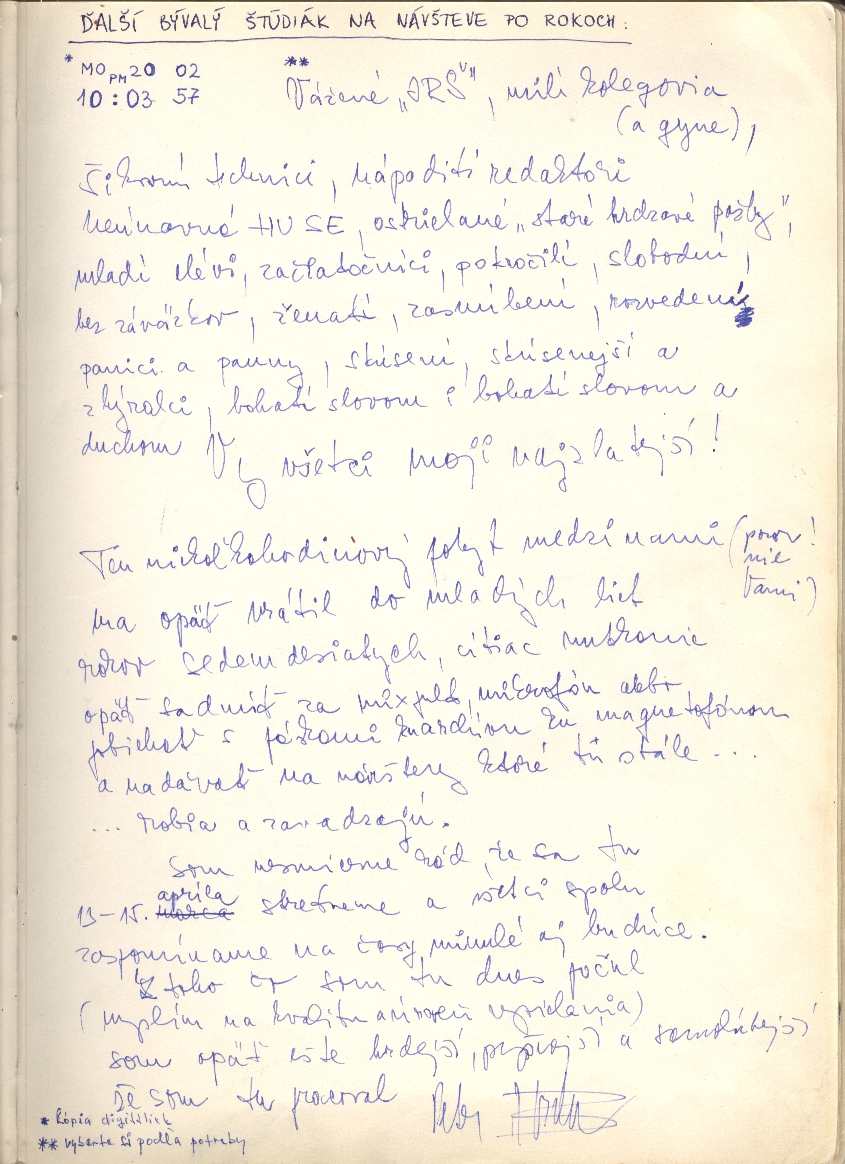 ĎALŠÍ BÝVALÝ ŠTÚDIÁK NA NÁVŠTEVE PO ROKOCH:
* MO PM20 02
10:03 57
** Vážené „IRŠ", milí kolegovia
(a gyne),
Šikovní technici, nápadití redaktoři
Neúnavné HUSE, ostrieľané „staré hrdzavé pošby",
mladí elévi, začiatočníci, pokročilí, slobodní,
bez záväzkov, ženatí, zasnúbení, rozvedení
panici a panny, skúsení, skúsenejší a
zkýralci, bohatí slovom i bohatí slovom a
duchom Vy všetci moji najzlatejší!
Ten niekoľkohodinový pobyt medzi nami (pozor!
nie
Vami)
ma opäť vrátil do mladých liet
rokov sedemdesiatych, cítiac nutkanie
opäť sadnúť za mixpult, mikrofón alebo
pobiehať s páskami ku magnetofónom
a nadávať na návštevy ktoré tu stále ...
... robia a zavadzajú.
Som nesmierne rád, že sa tu
13-15. apríla marca stretneme a všetci spolu
zaspomíname na časy minulé aj budúce.
Z toho čo som tu dnes počul
(myslím na kvalitu a úroveň vysielania)
som opäť ešte hrdejší, pyšnejší a samoľúbejší
že som tu pracoval Peter
* kópia digitáliek
** vyberte si podľa potreby